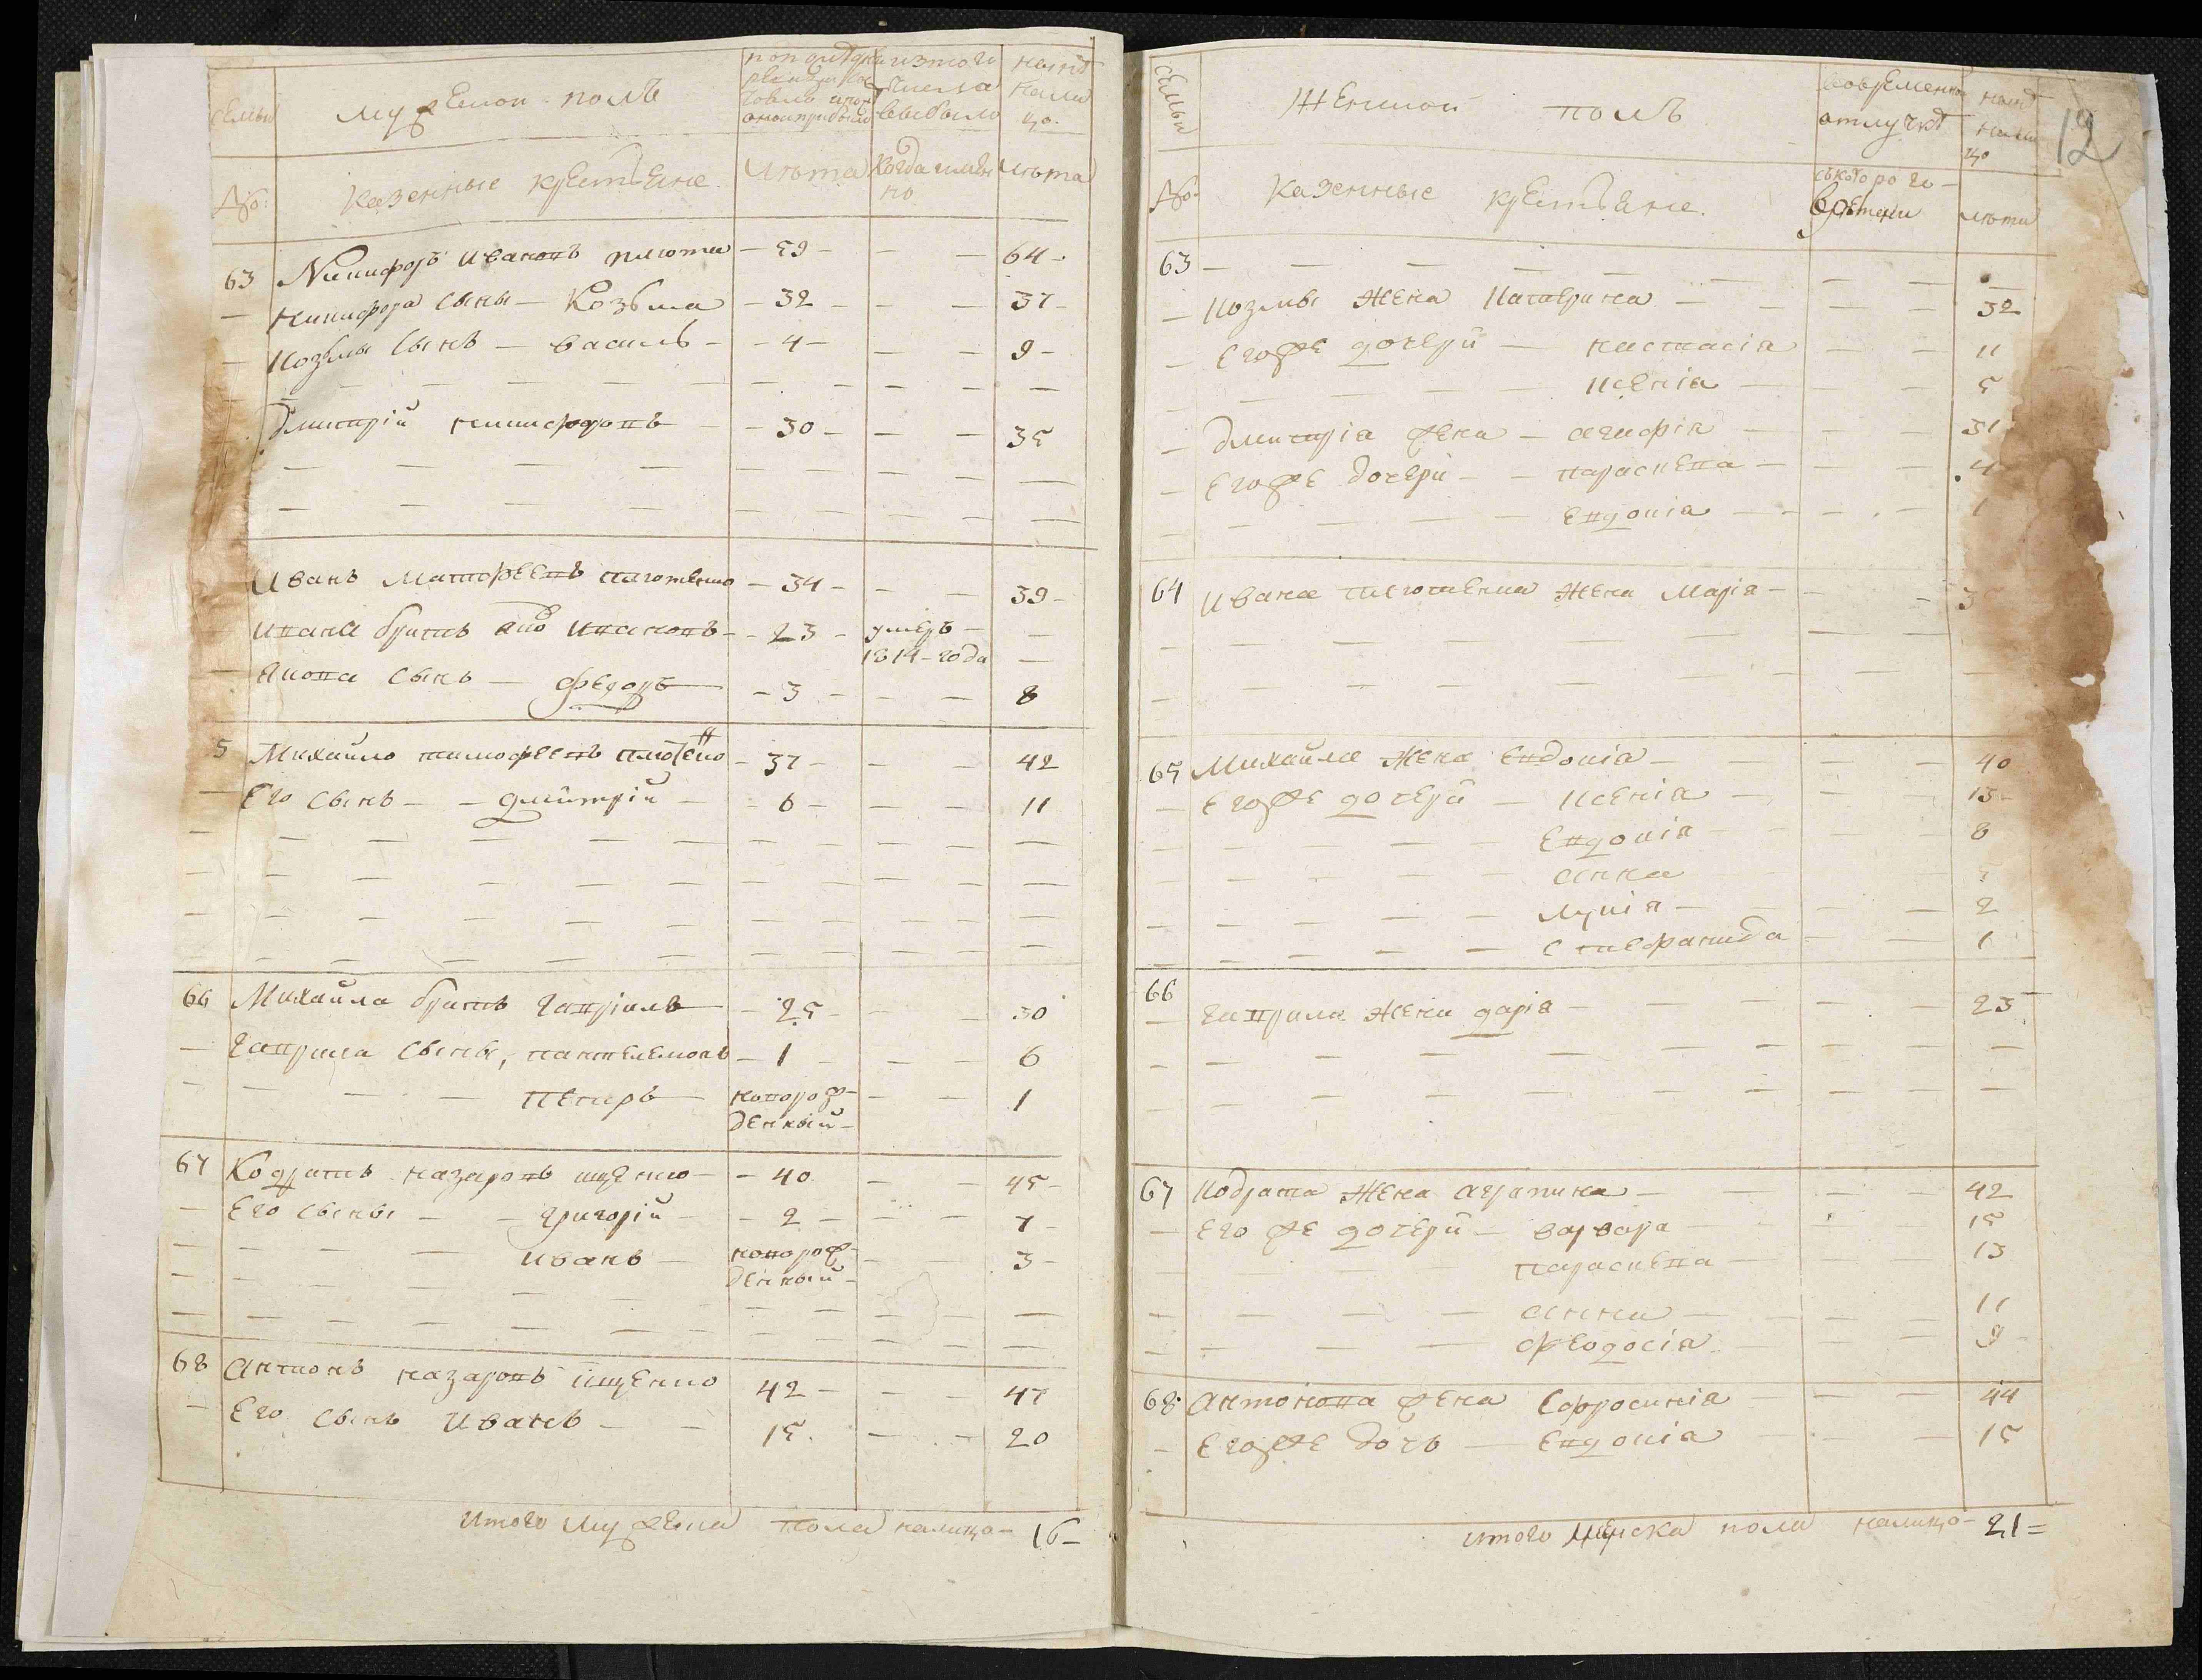 семьи
мужескои полъ
по последней
ревизіи со
стояло и по
оной прибыло
изтого
числа
выбыло
нынѣ
нали
цо.
№:
казенные крестьяне.
лѣта
когда имян
но
лѣта
63 Никифоръ Ивановъ плюта — 59 — — — 64 —
— никифора сыны — Козьма — 32 — — — 37 —
— козьмы сынъ — василь — 4 — — — 9 —
Дмитрій никифоровъ — 30 — — — 35
Иванъ Матофеевъ плютенко — 34 — — — 39 —
Ивана братъ Ивановъ — 23 — умеръ —
1814 — года —
Якова сынъ — Федоръ — 3 — — — 8
5 Михайло тимофеевъ плютенко — 37 — — — 42
— Его сынъ — — дмитрій — 6 — — — 11
66 Михайла братъ гавріилъ — 25 — — — 30
— гаврила сыны, пантелемонъ — 1 — — — 6
— — — — петръ — новорож-
денный — — — 1
67 Кодратъ назаровъ ищенко — 40 — — 45 —
— Его сыны — — григорій — 2 — — — 7 —
— — — — иванъ — новорож-
денный — — — 3 —
68 Антонъ назаровъ ищенко 42 — — — 47
— Его сынъ Иванъ — — 15. — — 20
итого мужеска пола налицо — 16 —
семьи
Женской полъ
вовременной
отлучкѣ
нынѣ
нали
цо
12
№.
казенные крестьяне.
съкоторого —
времени
лѣта
63 — — — — — — — —
— козмы жена катерина — — — — 32
— егоже дочери — настасіа — — 11
— — — — ксеніа — — — 5
— дмитріа жена — агафіа — — — 31
— егоже дочери — — параскева — — — 4
— — — — евдокіа — — — — 1
64 ивана плютенка жена маріа — — —
65 михайла жена евдокіа — — — — 40
— егоже дочери — ксеніа — — — 13 —
— — — — евдокіа — — — 8
— — — — анна
— — — — лукіа — — — 2
— — — — степанида — — 1
66
— гаврила жена даріа — — — — — 23
67 кодрата жена агрипина — — — — 42
— его же дочери — варвара — — 15
— — — — параскева — — — 13
— — — — анна — — — 11
— — — — феодосіа — — — 9
68. антонова жена Софросиніа — — — 44
— егоже дочь — евдокіа — — — 15
итого женска пола налицо — 21 =